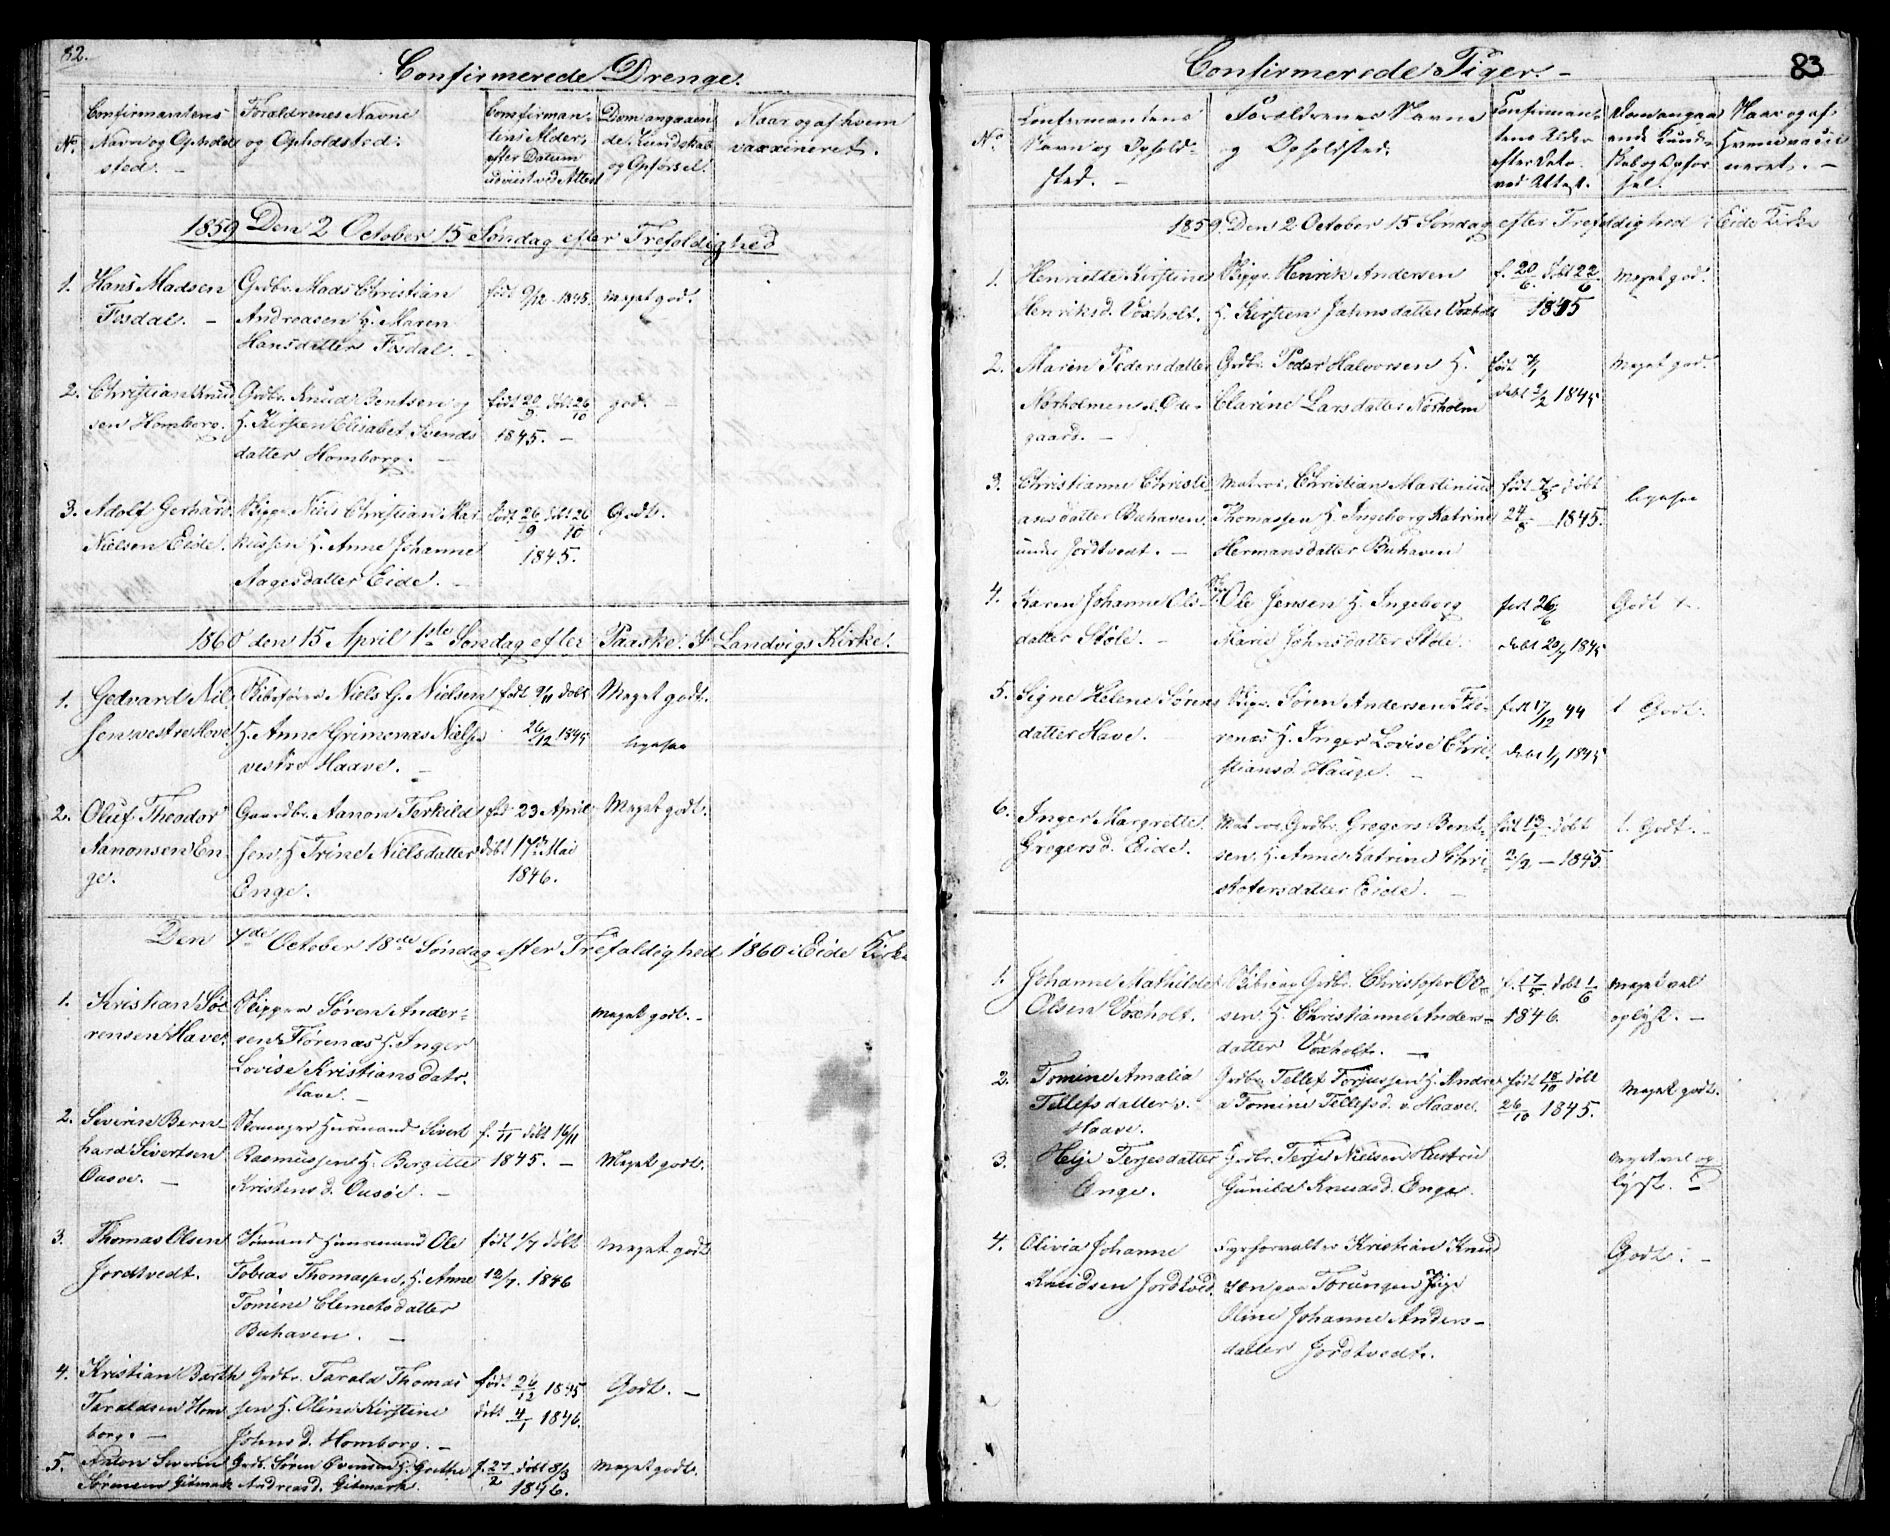 82.
Confirmerede Drenge.
No.
Confirmantens
Navn og Ophold
sted. -
Forældrenes Navne
og Opholdsted:
Confirman-
tens Alder,
efter Datum
udviist ved Attest
Dom angaaen
de Kundskab
og Opførsel.
Naar og af hvem
vaxxineret.
1859 Den 2 October 15 Søndag efter Trefoldighed
1. Hans Madsen
Fosdal. -
Grdbr. Mads Christian
Andreasen H. Maren
Hansdatter Fosdal. -
født 9/12 1845.
Meget god.
2. Christian Knud
sen Homborg.
Grdbr. Knud Bentsen og
H. Kirsten Elisabet Svends
datter Homborg. -
født 20/9 døbt 26/10
1845. -
god. -
3. Adolf Gerhard
Nielsen Eide.
Skipper Niels Christian Mar
kussen H. Anne Johanne
Aagesdatter Eide. -
født 26/9 døbt 26/10
1845.
Godt.
1860 den 15 April 1ste Søndag efter Paaske. I Landvigs Kirke.
1. Gedvard Niel
sen vestre Hove
Skibsfører Niels G. Nielsen
H. Anne Grimenæs Nielss
vestre Haave. -
født 9/11 døbt
26/12 1845
Meget godt.
ligesaa
2. Oluf Theodor
Aanonsen En-
ge.
Gaardbr. Aanon Terkild
sen H Trine Nielsdatter
Enge.
fød 23 April
døbt 17de Mai
1846.
Meget godt.
Den 7de October 18de Søndag efter Trefaldighed 1860 i Eide Kirke
1. Kristian Sø
rensen Have.
Skipper Søren Ander-
sen Fiørenæs H. Inger
Lovise Kristiansdatr.
Have. -
Meget godt. -
2. Severin Bern
hard Sivertsen
Ousøe. -
Husmand Sivert
Rasmussen H. Bergitte
Kristens d. Ousøe. -
f. 1/11 døbt 16/11
1845. -
Meget godt.
3. Thomas Olsen
Jordtvedt.
Sømand Huusmand Ole
Tobias Thomassen, H. Anne
Tomine Clemetsdatter
Buhaven. -
født 1/7 døbt
12/7. 1846
Meget godt
4. Kristian Barth
Taraldsen Hom
borg. -
Grdbr. Tarald Thomas
sen H. Oline Kirstine
Johns d. Homborg. -
født 26/12 1845
døbt 4/1 1846.
Godt. -
5. Anton Severin
Sørensen Gitmark
Grdb. Søren Evensen H. Grethe
Andreas d. Gitmark.
f. 27/2 døbt 8/3
1846.
Meget godt.
83
Confirmerede Piger. -
No.
Confermantens
Navn og Ophold-
sted. -
Forældrenes Navne
og Opholdsted.
Confirman-
tens Alder
efter Dato
ved Attest.
Dom angaa
ende Kund-
skab og Opfør
sel.
Naar og af
hvem vacci
neret. -
1859. Den 2 October 15 Søndag efter Trefoldighed i Eide Kirke
1. Henriette Kirstine
Henriksd. Voxholt.
Skipp. Henrik Andersen
H. Kirsten Jahnsdatter Voxholt
f. 20/6. døbt 22/6
1845
Meget god.
2. Maren Pedersdatter
Nørholmen el. Ou-
gaard. -
Grdbr. Peder Halvorsen H.
Clarine Larsdatter Nørholm
født 7/1
døbt 2/2 1845
Meget god.
3. Christianne Christi-
ansdatter Buhaven
under Jordtvedt. -
Matros, Christian Martinius
Thomassen H. Ingeborg Katrine
Hermansdatter Buhaven
født 7/8 døbt
24/8 - 1845.
ligesaa
4. Karen Johanne Ols
datter Støle. -
Ole Jensen H. Ingeborg
Marie Johnsdatter Støle.
født 26/6
døbt 20/7 1845
Godt
5. Signe Helene Sørens
datter Have. -
Skipr. Søren Andersen Fiø-
renæs H. Inger Lovise Chri-
stians d. Hauge. -
født 17/12 44
døbt 1/1 1845
t. Godt.
6. Inger Margrette
Gregers d. Eide.
Matros Grdbr. Gregers Bent-
sen. H. Anne Katrine Chri-
stofersdatter Eide. -
født 13/1 døbt
2/2 - 1845.
t. Godt. -
1. Johanne Mathilde
Olsen Voxholt.
Grdbr. Christofer Ol-
sen. H. Christianne Anders-
datter Voxholt. -
f. 17/5. døbt 1/6
1846.
Meget vel
oplyst. -
2. Tomine Amalia
Tellefsdatter v.
Haave.
Grdbr. Tellef Torjussen H. Andre
a Tomine Tellefs d. v. Haave.
født 18/10 døbt
26/10 1845.
Meget godt.
3. Helje Terjesdatter
Enge.
Grdbr. Terje Nielsen Hustru
Gunild Knuds d. Enge.
Meget vel op
lyst. -
4. Olivia Johanne
Knudsen Jordtved.
Fyrforvalter Kristian Knud
sen paa Torungen Pige
Oline Johanne Anders-
datter Jordtvedt.
Godt. -